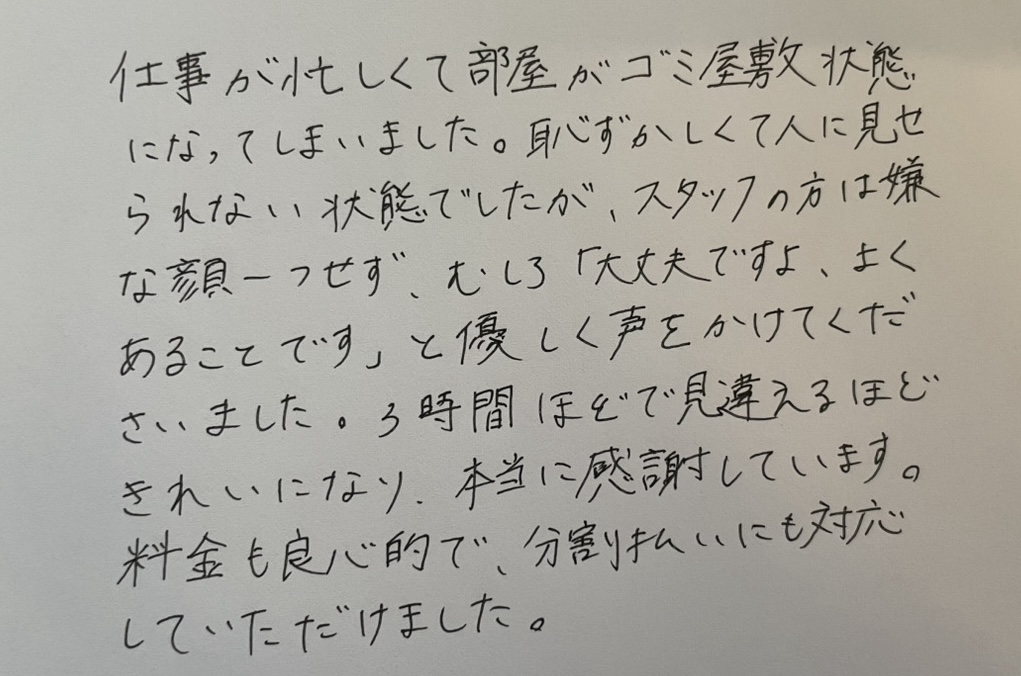 仕事が忙しくて部屋がゴミ屋敷状態
になってしまいました。恥ずかしくて人に見せ
られない状態でしたが、スタッフの方は嫌
な顔一つせず、むしろ「大丈夫ですよ、よく
あることです」と優しく声をかけてくだ
さいました。3時間ほどで見違えるほど
きれいになり、本当に感謝しています。
料金も良心的で、分割払いにも対応
していただけました。